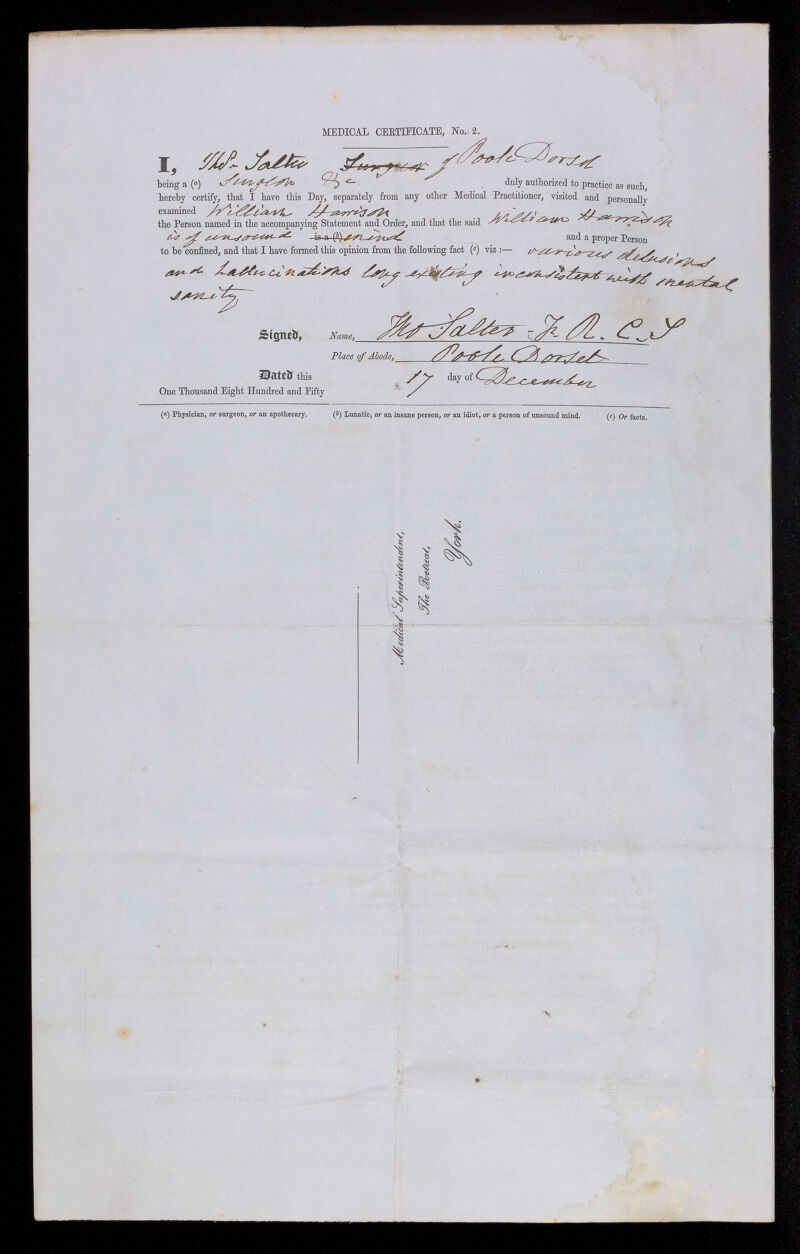 MEDICAL CERTIFICATE, No. 2.
I, Thos. Salter Surgeon of Poole Dorset
being a (a) Surgeon &c duly authorized to practice as such,
hereby certify, that I have this Day, separately from any other Medical Practitioner, visited and personally
examined William Harrison
the Person named in the accompanying Statement and Order, and that the said William Harrison
is of unsound is a (b) mind and a proper Person
to be confined, and that I have formed this opinion from the following fact (c) viz :— various delusions
and hallucinations long existing inconsistent with mental
sanity
Signed, Name, Tho Salter F. R. C. S
Place of Abode, Poole Dorset
Dated this 17 day of December
One Thousand Eight Hundred and Fifty
(a) Physician, or surgeon, or an apothecary. (b) Lunatic, or an insane person, or an idiot, or a person of unsound mind. (c) Or facts.
Medical Superintendent,
The Retreat,
York.